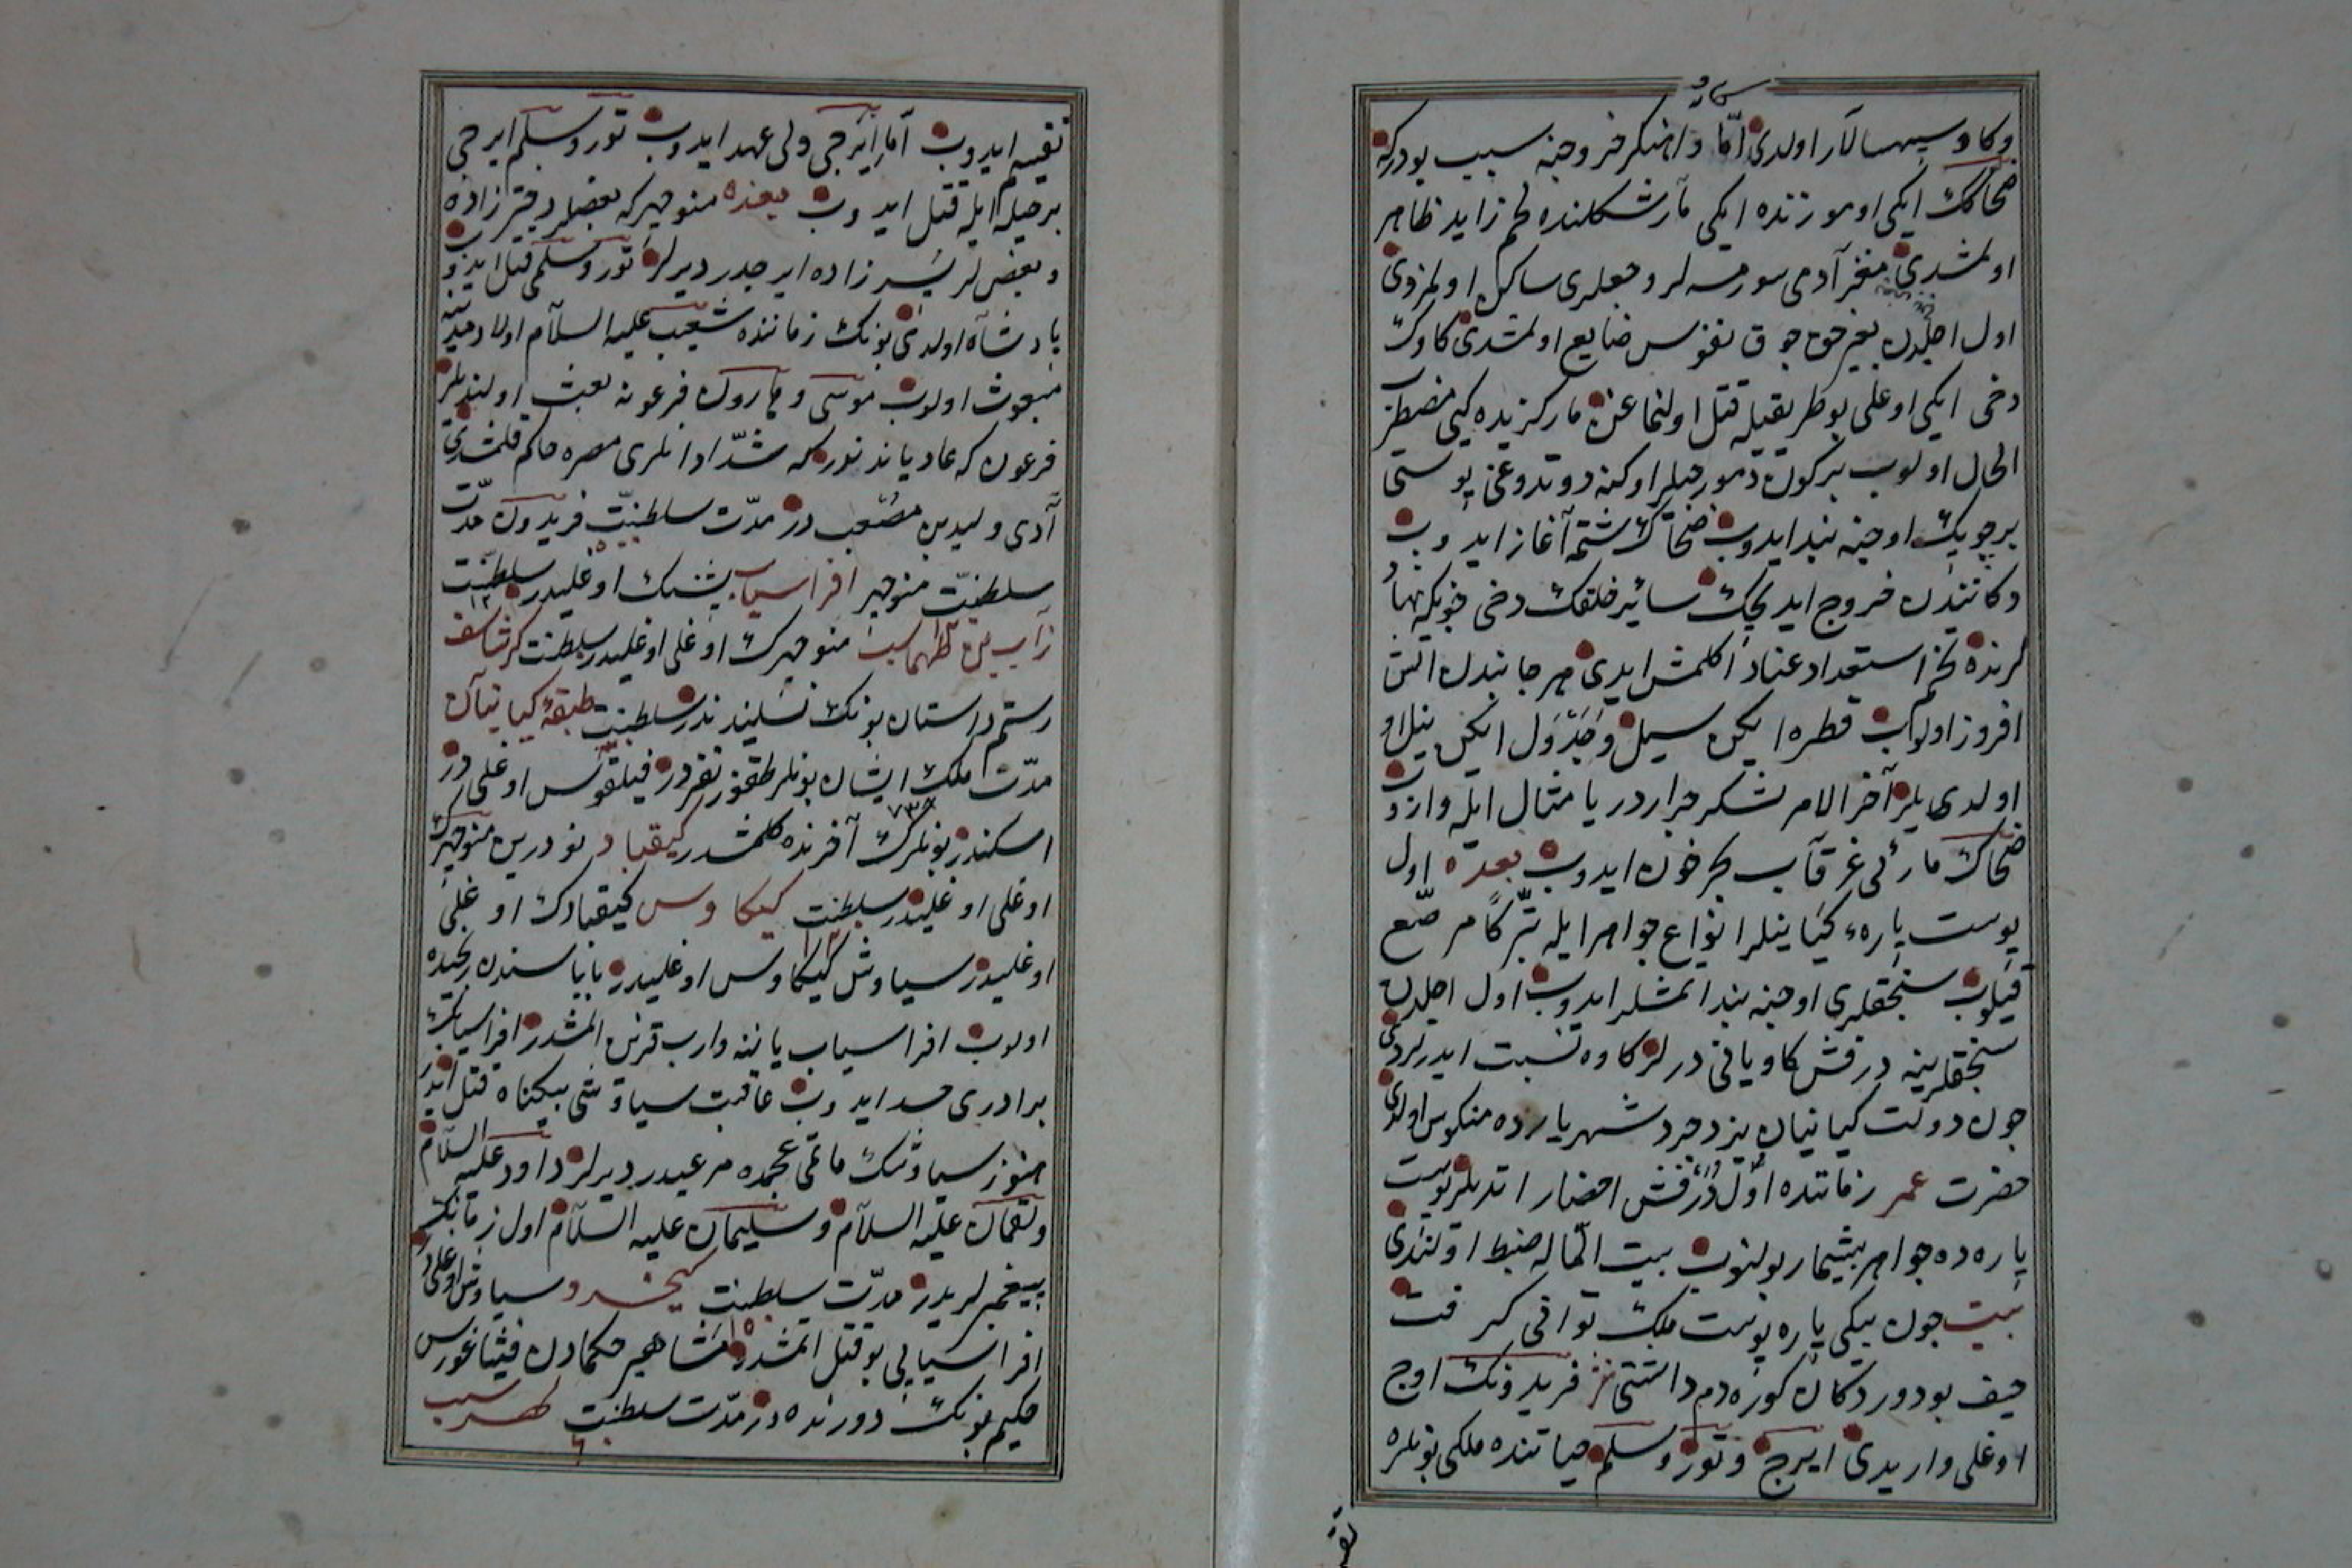 وكاوه سپهسالار اولدى امّا داهنكر خروجنه سبب بودركه
ضحاكك ايكى اوموزنده ايكى مار شكلنده لحم زايد ظاهر
اولمشدى مغز آدمى سورمسه‌لر وجعلرى ساكن اولمزدى
اول اجلدن بغير حق چوق نفوس ضايع اولمشدى كاوه‌نك
دخى ايكى اوغلى بو طريقيله قتل اولنماغن مار كزيده كبى مضطرب
الحال اولوب بر كون دمورجيلر اوكنه دوتدوغى پوستى
بر چوبك اوجنه بند ايدوب ضحاكه شتمه آغاز ايدوب
دكانندن خروج ايديجك سائر خلقك دخى چونكه نهاد
لرنده تخم استعداد عناد اكلمش ايدى هر جانبدن آتش
افروز اولوب قطره ايكن سيل وجدول ايكن نيل او
اولديلر آخر الامر لشكر جرار دريا مثال ايله واروب
ضحاك مارئى غرقاب بحر خون ايدوب بعده اول
پوست پاره‌ء كيانيلر انواع جواهر ايله تبرّكاً مرصّع
قيلوب سنجقلرى اوجنه بند اتمشلر ايدوب اول اجلدن
سنجقلرينه درفش كاويانى درلر كاوه نسبت ايدرلردى
چون دولت كيانيان يزدجرد شهريارده منكوس اولدى
حضرت عمر زماننده اوّل درفش احضار اتديلر پوست
پاره ده جواهر بيشمار بولنوب بيت الماله ضبط اولندى
بيت چون بيكى پاره پوست ملك توانى كرفت
حيف بود در دكان كوره دم داشتى نثر فريدونك اوچ
اوغلى واريدى ايرج وتور وسلم حياتنده ملكى بونلره
تقسيم ايدوب امّا ايرجى ولى عهد ايدوب تور وسلم ايرجى
بر حيله ايله قتل ايدوب بعده منوچهر كه بعضلر دختر زاده
وبعضلر پسر زاده ايرجدر ديرلر تور وسلمى قتل ايدوب
پادشاه اولدى بونك زماننده شعيب عليه السلام اولاد مدينه
مبعوث اولوب موسى وهارون فرعونه بعث اولنديلر
فرعون كه عاديانندندر كه شدّاد انلرى مصره حاكم قلمشدى
آدى وليد بن مصعب در مدّت سلطنت فريدون مدّت
سلطنت منوچهر افراسياب پشنك اوغليدر سلطنت
زاب بن طهماسب منوچهرك اوغلى اوغليدر سلطنت كرشاسف
رستم داستان بونك نسلندندر سلطنت طبقهٔ كيانيان
مدّت ملك ايشان بونلر طقوز نفردر فيلقوس اوغلى در
٧٣٤
اسكندر بونلرك آخرنده كلمشدر كيقباد نودر بن منوچهرك
اوغلى اوغليدر سلطنت كيكاوس كيقبادك اوغلى
اوغليدر سياوش كيكاوس اوغليدر باباسندن رنجيده
اولوب افراسياب ياننه واروب قزن المشدر افراسيابك
برادرى حسد ايدوب عاقبت سياوشى بيكناه قتل ايدر
هنوز سياوشك ماتمى عجمده هر عيدر ديرلر داود عليه السلام
ولقمان عليه السلام وسليمان عليه السلام اول زمانك
پيغمبرلريدر مدّت سلطنت كيخسرو سياوش اوغلى در
افراسيابى بو قتل اتمشدر مشاهير حكمادن فيثاغورس
حكيم بونك دورنده در مدّت سلطنت لهراسب
تقسيم